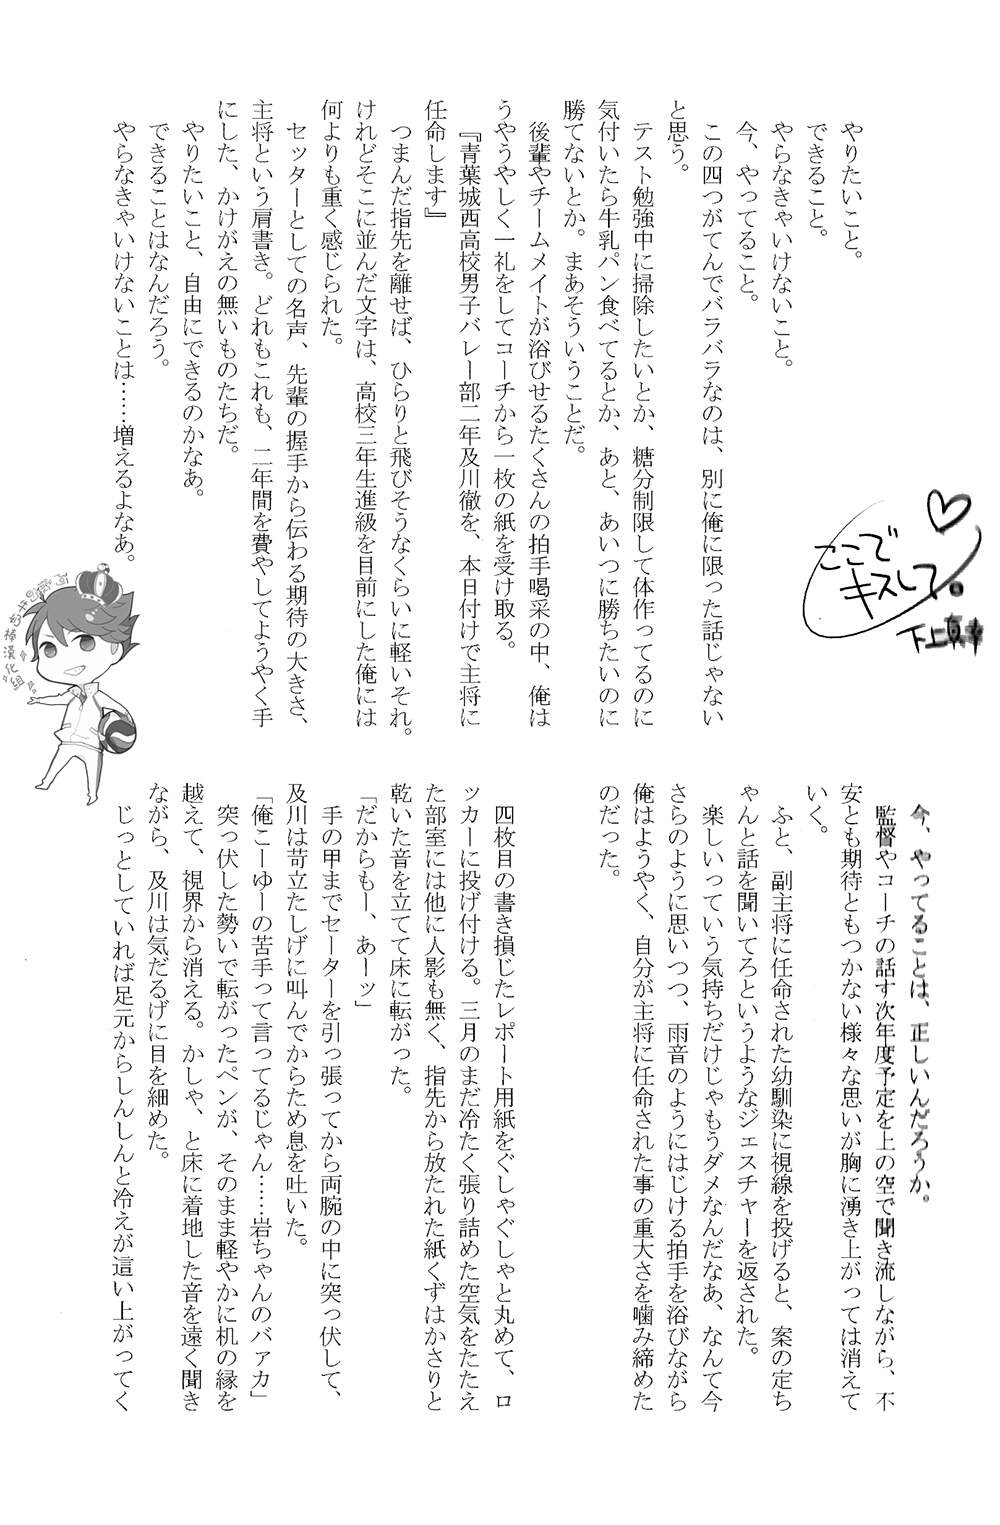 ここで
キスして。
やりたいこと。
できること。
やらなきゃいけないこと。
今、やってること。
この四つがてんでバラバラなのは、別に俺に限った話じゃない
と思う。
テスト勉強中に掃除したいとか、糖分制限して体作ってるのに
気付いたら牛乳パン食べてるとか、あと、あいつに勝ちたいのに
勝てないとか。まあそういうことだ。
後輩やチームメイトが浴びせるたくさんの拍手喝采の中、俺は
うやうやしく一礼をしてコーチから一枚の紙を受け取る。
『青葉城西高校男子バレー部二年及川徹を、本日付けで主将に
任命します』
つまんだ指先を離せば、ひらりと飛びそうなくらいに軽いそれ。
けれどそこに並んだ文字は、高校三年生進級を目前にした俺には
何よりも重く感じられた。
セッターとしての名声、先輩の握手から伝わる期待の大きさ、
主将という肩書き。どれもこれも、二年間を費やしてようやく手
にした、かけがえの無いものたちだ。
やりたいこと、自由にできるのかなあ。
できることはなんだろう。
やらなきゃいけないことは……増えるよなあ。
今、やってることは、正しいんだろうか。
監督やコーチの話す次年度予定を上の空で聞き流しながら、不
安とも期待ともつかない様々な思いが胸に湧き上がっては消えて
いく。
ふと、副主将に任命された幼馴染に視線を投げると、案の定ち
ゃんと話を聞いてろというようなジェスチャーを返された。
楽しいっていう気持ちだけじゃもうダメなんだなあ、なんて今
さらのように思いつつ、雨音のようにはじける拍手を浴びながら
俺はようやく、自分が主将に任命された事の重大さを噛み締めた
のだった。
四枚目の書き損じたレポート用紙をぐしゃぐしゃと丸めて、ロ
ッカーに投げ付ける。三月のまだ冷たく張り詰めた空気をたたえ
た部室には他に人影も無く、指先から放たれた紙くずはかさりと
乾いた音を立てて床に転がった。
「だからもー、あーッ」
手の甲までセーターを引っ張ってから両腕の中に突っ伏して、
及川は苛立たしげに叫んでからため息を吐いた。
「俺こーゆーの苦手って言ってるじゃん……岩ちゃんのバァカ」
突っ伏した勢いで転がったペンが、そのまま軽やかに机の縁を
越えて、視界から消える。かしゃ、と床に着地した音を遠く聞き
ながら、及川は気だるげに目を細めた。
じっとしていれば足元からしんしんと冷えが這い上がってく